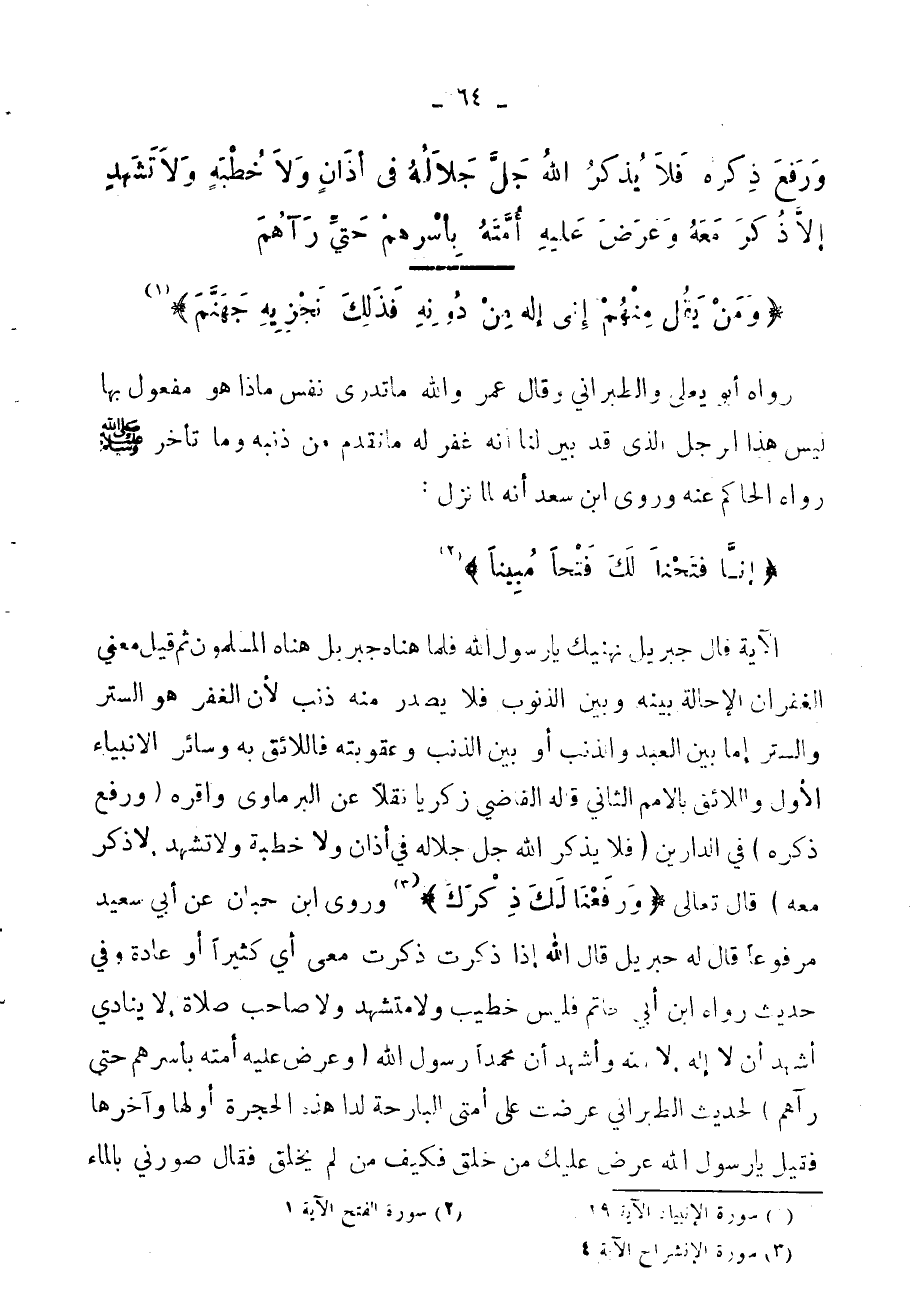 - ٦٤ -
وَرَفَعَ ذِكرَه فَلاَ يُذكرُ اللهُ جَلَّ جَلاَلُهُ فى أذَانٍ وَلاَ خُطْبَةٍ وَلاَ تَشَهدٍ
إلاَّ ذُكرَ مَعَهُ وَعَرَضَ عَليهِ أُمَّتَهُ بِأسْرِهمْ حَتىَّ رَآهُمَ
﴿ وَمَنْ يَقُل مِنْهُمْ إنى إله مِنْ دُونِهِ فَذَلِكَ نَجْزِيهِ جَهَنَّمَ﴾(١)
رواه أبو يعلى والطبراني وقال عمر والله ماتدرى نفس ماذا هو مفعول بها
ليس هذا الرجل الذى قد بين لنا أنه غفر له ماتقدم من ذنبه وما تأخر ﷺ
رواه الحاكم عنه وروى ابن سعد أنه لما نزل :
﴿ إنـَّا فتَحْناَ لَكَ فَتْحاً مُبِيناً ﴾(٢)
الآية قال جبريل نهنيك يارسول الله فلما هناه جبريل هناه المسلمون ثم قيل معنى
الغفران الإحالة بينه وبين الذنوب فلا يصدر منه ذنب لأن الغفر هو الستر
والستر إما بين العبد والذنب أو بين الذنب وعقوبته فاللائق به وسائر الانبياء
الأول واللائق بالامم الثاني قاله القاضي زكريا نقلاً عن البرماوى واقره ( ورفع
ذكره ) في الدارين ( فلا يذكر الله جل جلاله في أذان ولا خطبة ولاتشهد إلاذكر
معه ) قال تعالى ﴿ وَرَفَعْنَا لَكَ ذِكْرَكَ﴾(٣) وروى ابن حبان عن أبي سعيد
مرفوعاً قال له جبريل قال الله إذا ذكرت ذكرت معى أي كثيراً أو عادة وفي
حديث رواه ابن أبي حاتم فليس خطيب ولامتشهد ولاصاحب صلاة إلا ينادي
أشهد أن لا إله إلا الله وأشهد أن محمداً رسول الله ( وعرض عليه أمته بأسرهم حتى
رآهم ) لحديث الطبراني عرضت على أمتى البارحة لدا هذه الحجرة أولها وآخرها
فقيل يارسول الله عرض عليك من خلق فكيف من لم يخلق فقال صورني بالماء
(١) سورة الإنبياء الآية ١٩ (٢) سورة الفتح الآية ١
(٣) سورة الإنشراح الآية ٤